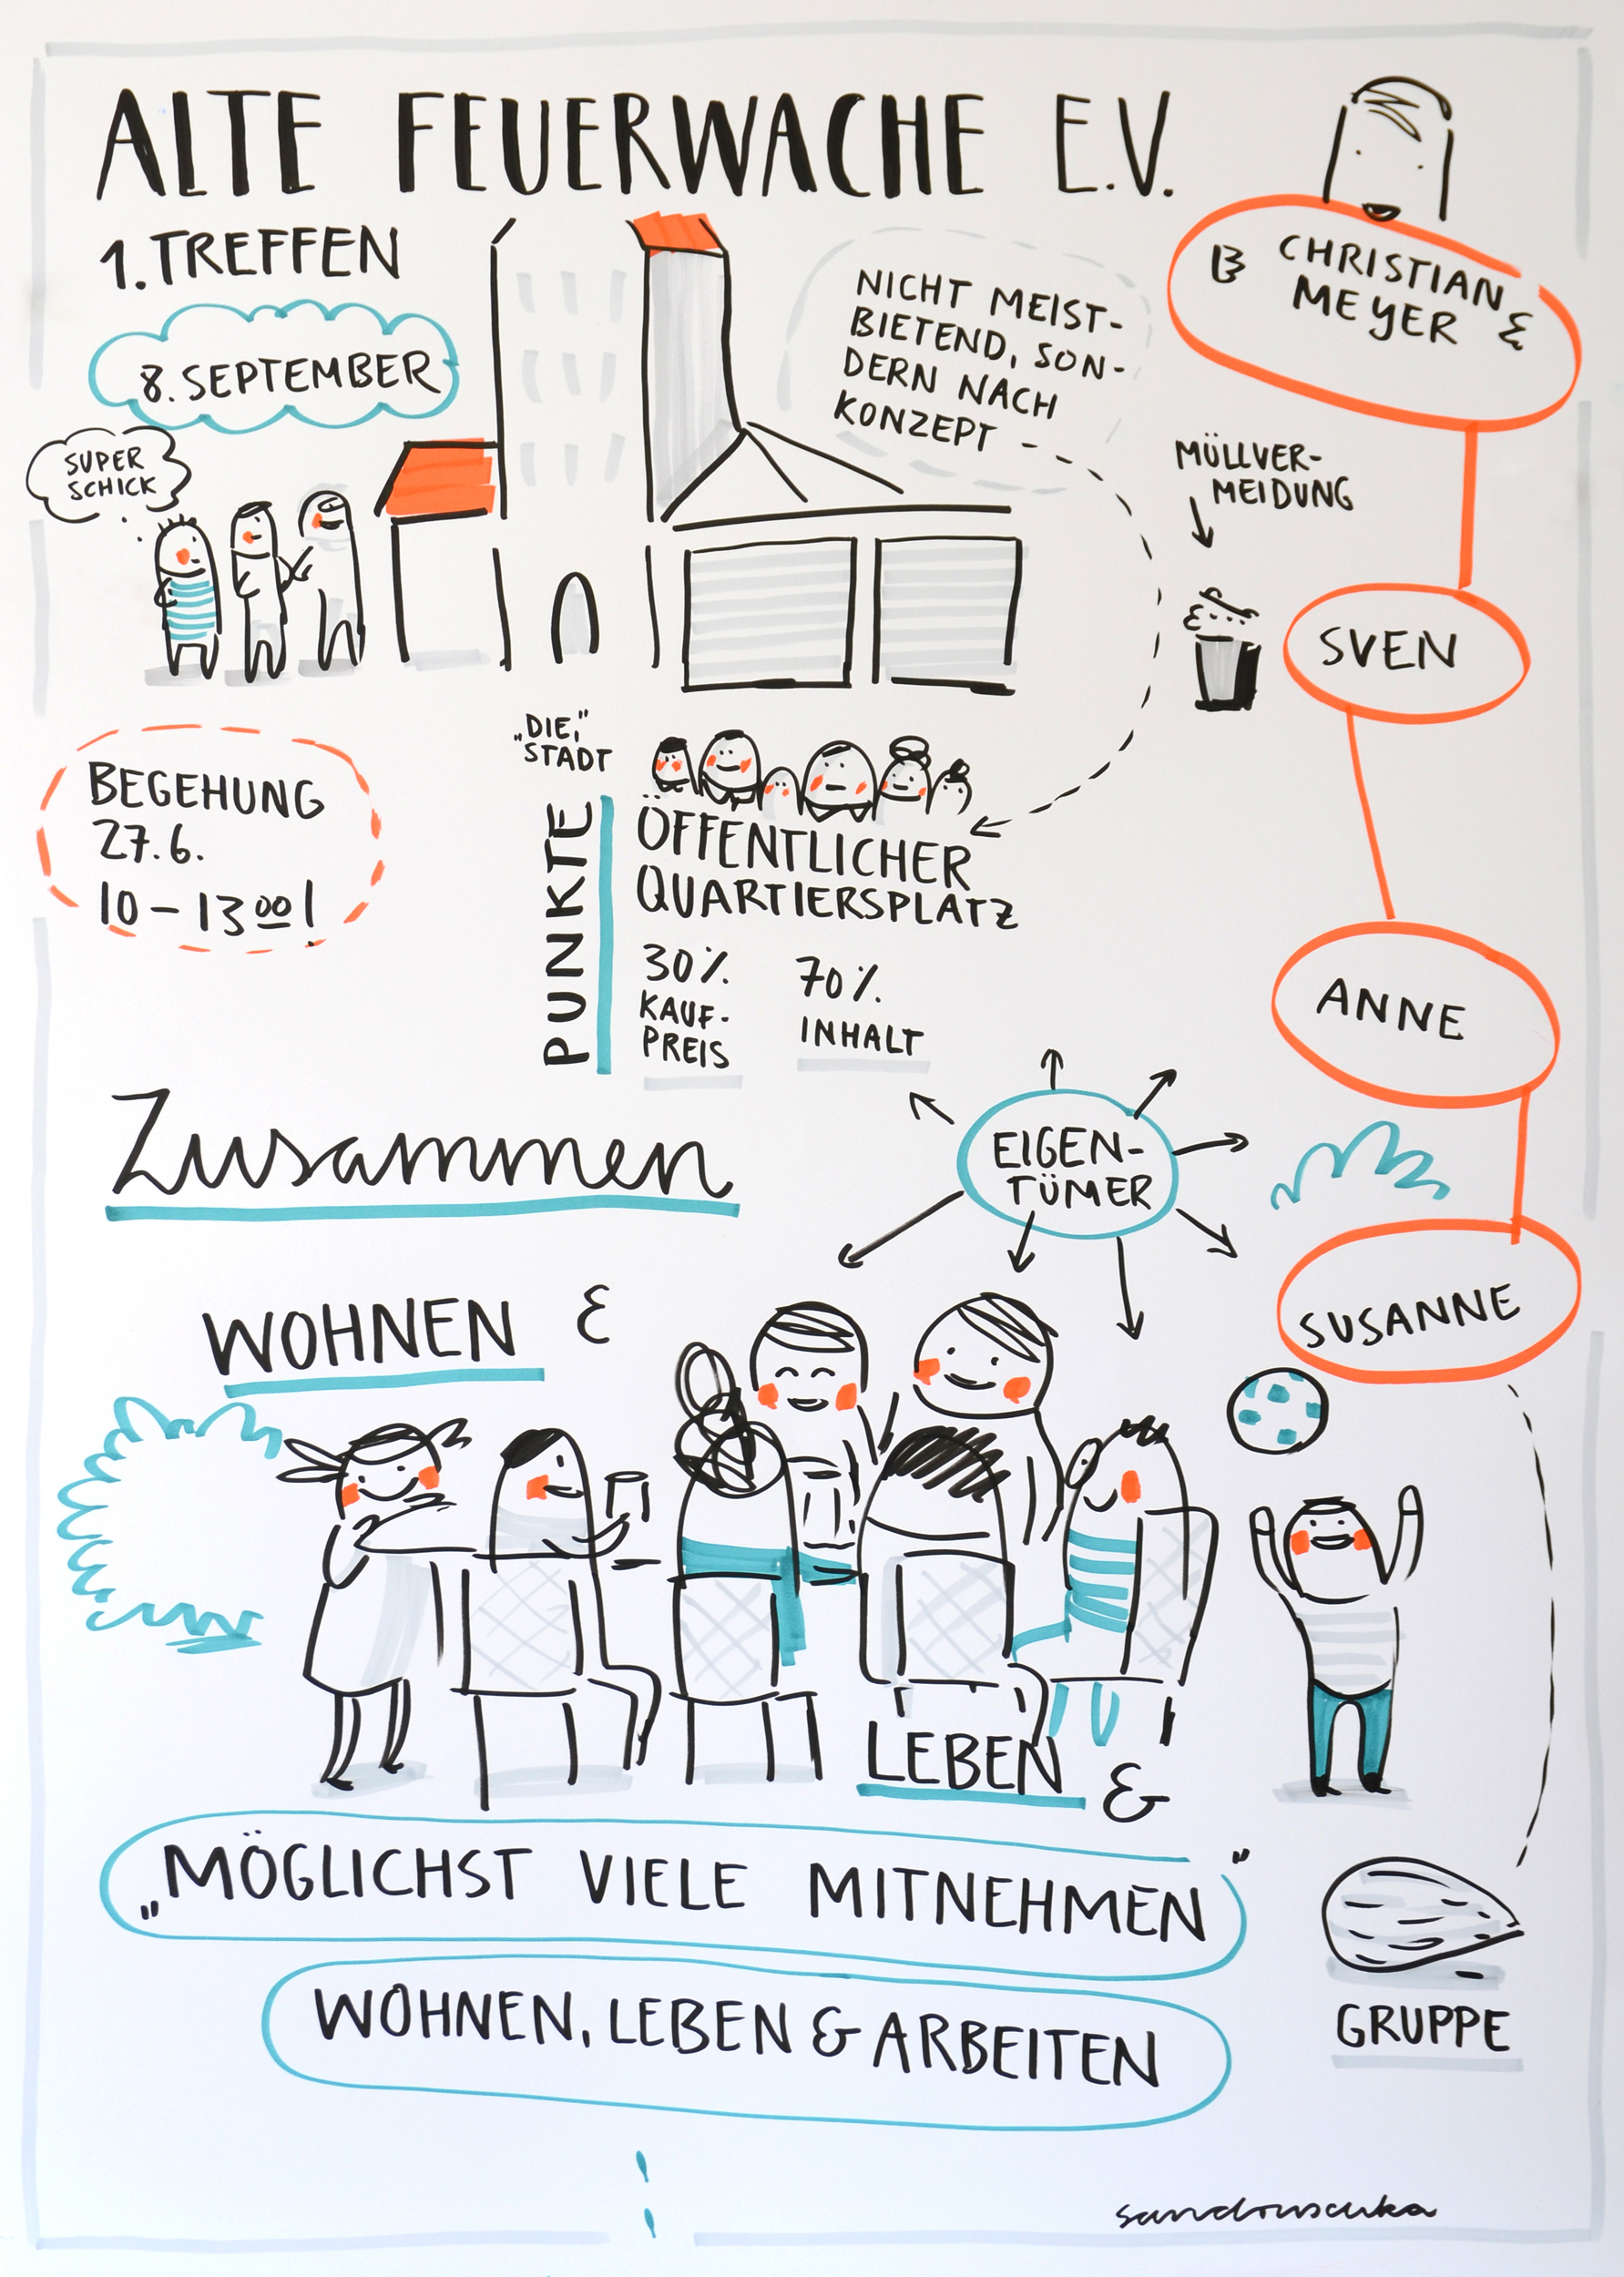 ALTE FEUERWACHE E.V.
1. TREFFEN
8. SEPTEMBER
SUPER
SCHICK
NICHT MEIST-
BIETEND, SON-
DERN NACH
KONZEPT -
B CHRISTIAN
MEYER &
MÜLLVER-
MEIDUNG
SVEN
BEGEHUNG
27.6.
10 - 13 00 !
„DIE,"
STADT
PUNKTE
ÖFFENTLICHER
QUARTIERSPLATZ
30%
KAUF-
PREIS
70%
INHALT
ANNE
Zusammen
EIGEN-
TÜMER
SUSANNE
WOHNEN &
LEBEN &
„MÖGLICHST VIELE MITNEHMEN"
WOHNEN, LEBEN & ARBEITEN
GRUPPE
sandruschka